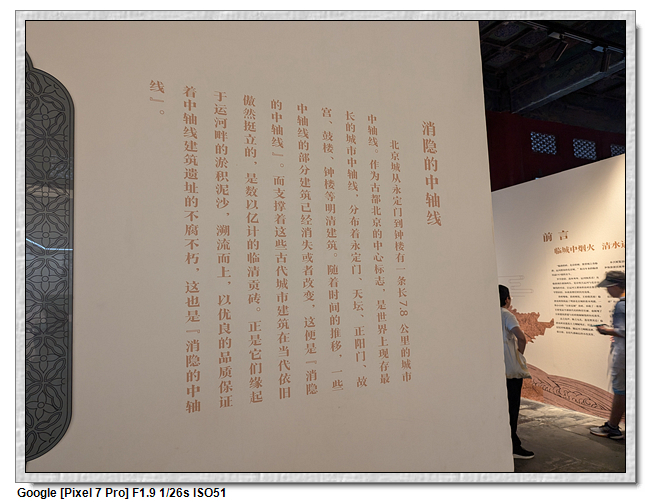 消隐的中轴线
北京城从永定门到钟楼有一条长7.8 公里的城市
中轴线。作为古都北京的中心标志，是世界上现存最
长的城市中轴线，分布着永定门、天坛、正阳门、故
宫、鼓楼、钟楼等明清建筑。随着时间的推移，一些
中轴线的部分建筑已经消失或者改变，这便是『消隐
的中轴线』。而支撑着这些古代城市建筑在当代依旧
傲然挺立的，是数以亿计的临清贡砖。正是它们缘起
于运河畔的淤积泥沙，溯流而上，以优良的品质保证
着中轴线建筑遗址的不腐不朽，这也是『消隐的中轴
线』。
前言
临城中烟火 清水
Google [Pixel 7 Pro] F1.9 1/26s ISO51